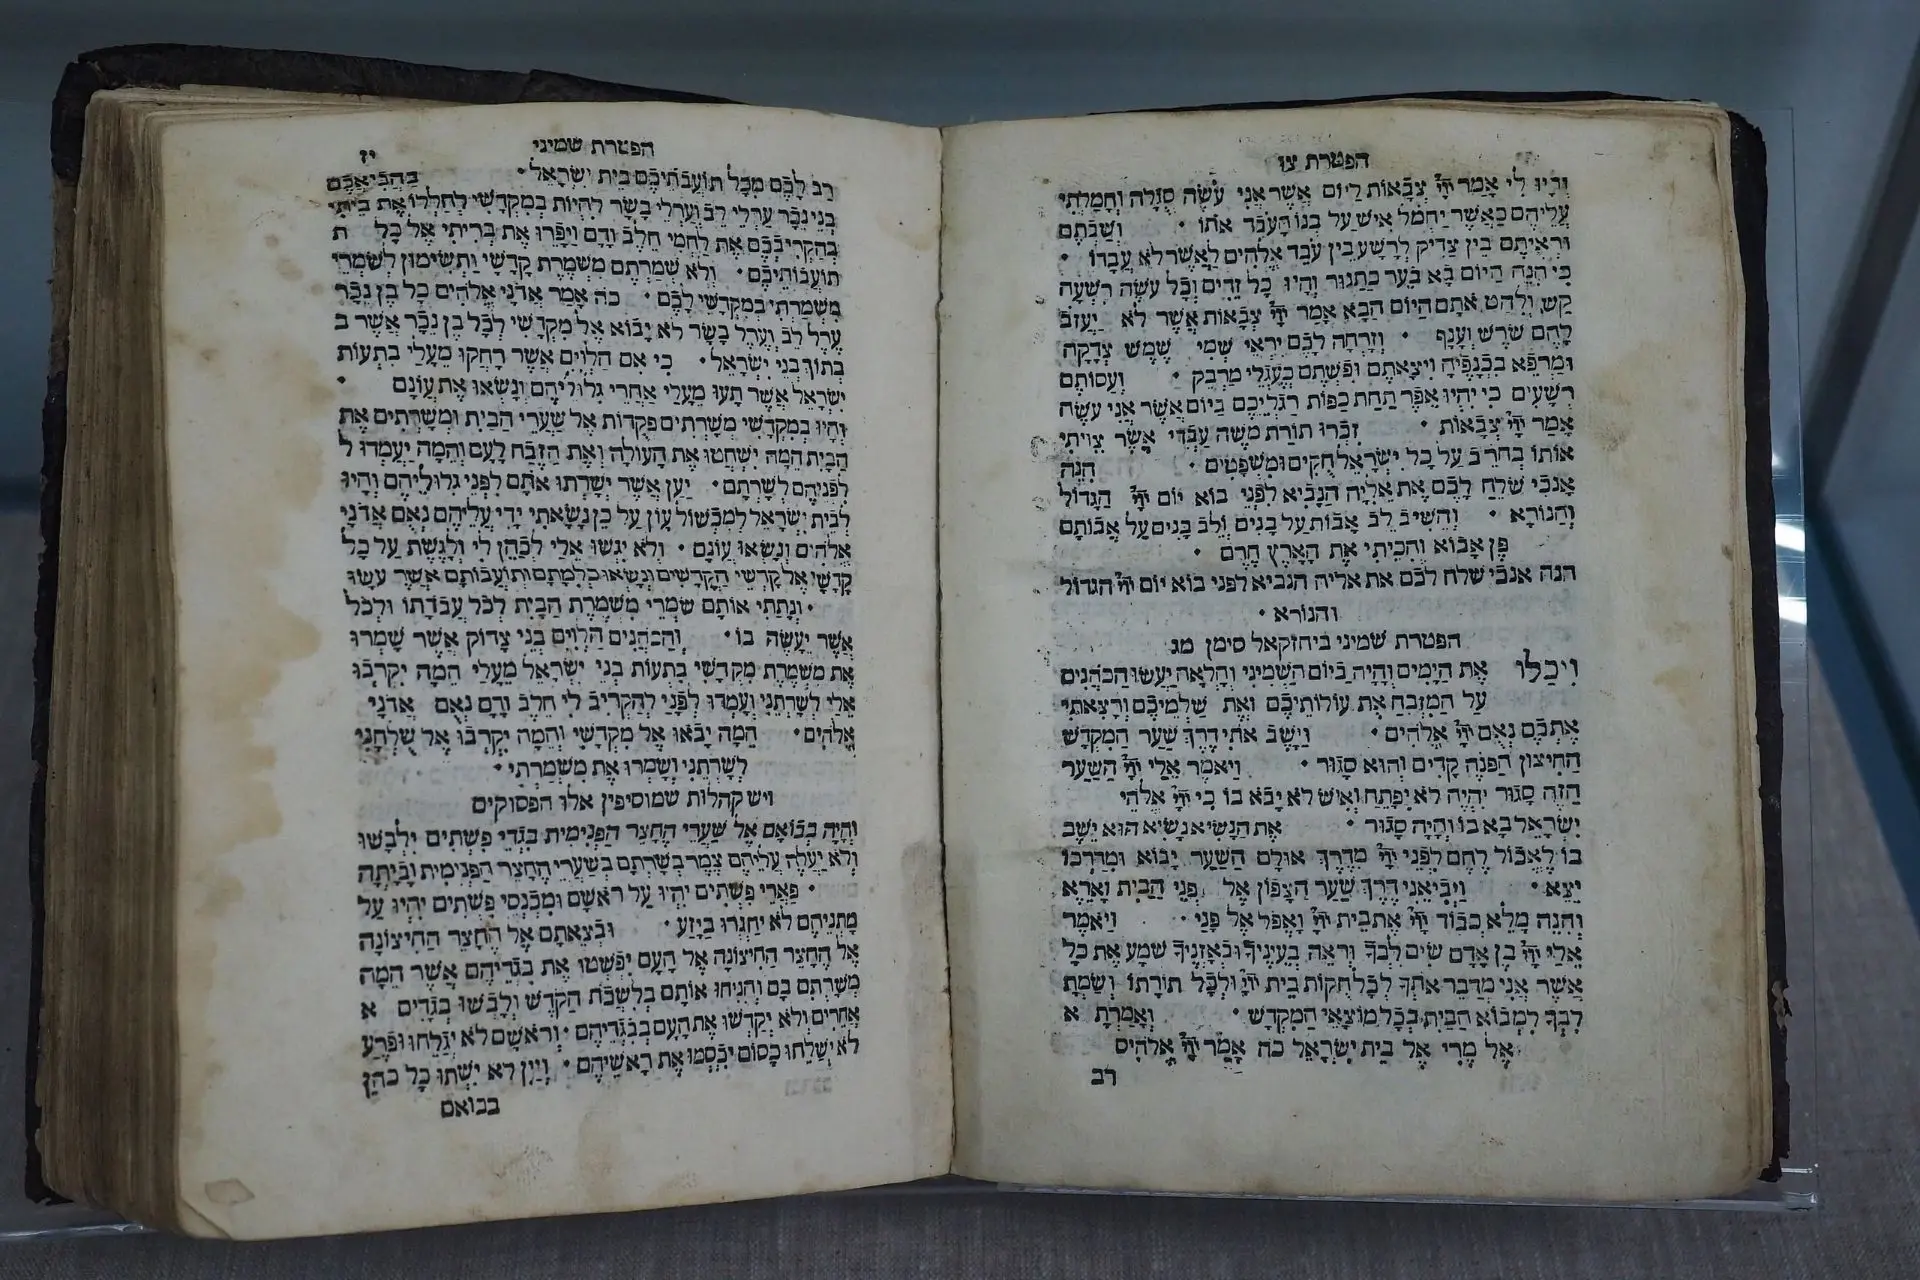 הפטרת צו
והיו לי אמר יי צבאות ליום אשר אני עשה סגלה וחמלתי
עליהם כאשר יחמל איש על בנו העבד אתו · ושבתם
וראיתם בין צדיק לרשע בין עבד אלהים לאשר לא עבדו ·
כי הנה היום בא בער כתנור והיו כל זדים וכל עשה רשעה
קש ולהט אתם היום הבא אמר יי צבאות אשר לא יעזב
להם שרש וענף · וזרחה לכם יראי שמי שמש צדקה
ומרפא בכנפיה ויצאתם ופשתם כעגלי מרבק · ועסותם
רשעים כי יהיו אפר תחת כפות רגליכם ביום אשר אני עשה
אמר יי צבאות · זכרו תורת משה עבדי אשר צויתי
אותו בחרב על כל ישראל חקים ומשפטים · הנה
אנכי שלח לכם את אליה הנביא לפני בוא יום יי הגדול
והנורא · והשיב לב אבות על בנים ולב בנים על אבותם
פן אבוא והכיתי את הארץ חרם ·
הנה אנכי שלח לכם את אליה הנביא לפני בוא יום יי הגדול
והנורא ·
הפטרת שמיני ביחזקאל סימן מג
ויכלו את הימים והיה ביום השמיני והלאה יעשו הכהנים
על המזבח את עולותיכם ואת שלמיכם ורצאתי
אתכם נאם יי אלהים · וישב אתי דרך שער המקדש
החיצון הפנה קדים והוא סגור · ויאמר אלי יי השער
הזה סגור יהיה לא יפתח ואיש לא יבא בו כי יי אלהי
ישראל בא בו והיה סגור · את הנשיא נשיא הוא ישב
בו לאכול לחם לפני יי מדרך אולם השער יבוא ומדרכו
יצא · ויביאני דרך שער הצפון אל פני הבית וארא
והנה מלא כבוד יי את בית יי ואפל אל פני · ויאמר
אלי יי בן אדם שים לבך וראה בעיניך ובאזניך שמע את כל
אשר אני מדבר אתך לכל חקות בית יי ולכל תורתו ושמת
לבך למבוא הבית בכל מוצאי המקדש · ואמרת א
אל מרי אל בית ישראל כה אמר יי אלהים
רב
הפטרת שמיני יז
רב לכם מכל תועבתיכם בית ישראל · בהביאכם
בני נכר ערלי לב וערלי בשר להיות במקדשי לחללו את ביתי
בהקריבכם את לחמי חלב ודם ויפרו את בריתי אל כל ת
תועבותיכם · ולא שמרתם משמרת קדשי ותשימון לשמרי
משמרתי במקדשי לכם · כה אמר אדני אלהים כל בן נכר
ערל לב וערל בשר לא יבוא אל מקדשי לכל בן נכר אשר ב
בתוך בני ישראל · כי אם הלוים אשר רחקו מעלי בתעות
ישראל אשר תעו מעלי אחרי גלוליהם ונשאו את עונם ·
והיו במקדשי משרתים פקדות אל שערי הבית ומשרתים את
הבית המה ישחטו את העולה ואת הזבח לעם והמה יעמדו ל
לפניהם לשרתם · יען אשר ישרתו אתם לפני גלוליהם והיו
לבית ישראל למכשול עון על כן נשאתי ידי עליהם נאם אדני
אלהים ונשאו עונם · ולא יגשו אלי לכהן לי ולגשת על כל
קדשי אל קדשי הקדשים ונשאו כלמתם ותועבותם אשר עשו
· ונתתי אותם שמרי משמרת הבית לכל עבדתו ולכל
אשר יעשה בו · והכהנים הלוים בני צדוק אשר שמרו
את משמרת מקדשי בתעות בני ישראל מעלי המה יקרבו
אלי לשרתני ועמדו לפני להקריב לי חלב ודם נאם אדני
אלהים · המה יבאו אל מקדשי והמה יקרבו אל שלחני
לשרתני ושמרו את משמרתי ·
ויש קהלות שמוסיפין אלו הפסוקים
והיה בבואם אל שערי החצר הפנימית בגדי פשתים ילבשו
ולא יעלה עליהם צמר בשרתם בשערי החצר הפנימית וביתה
· פארי פשתים יהיו על ראשם ומכנסי פשתים יהיו על
מתניהם לא יחגרו ביזע · ובצאתם אל החצר החיצונה
אל החצר החיצונה אל העם יפשטו את בגדיהם אשר המה
משרתם בם והניחו אותם בלשכת הקדש ולבשו בגדים א
אחרים ולא יקדשו את העם בבגדיהם · וראשם לא יגלחו ופרע
לא ישלחו כסום יכסמו את ראשיהם · ויין לא ישתו כל כהן
בבואם